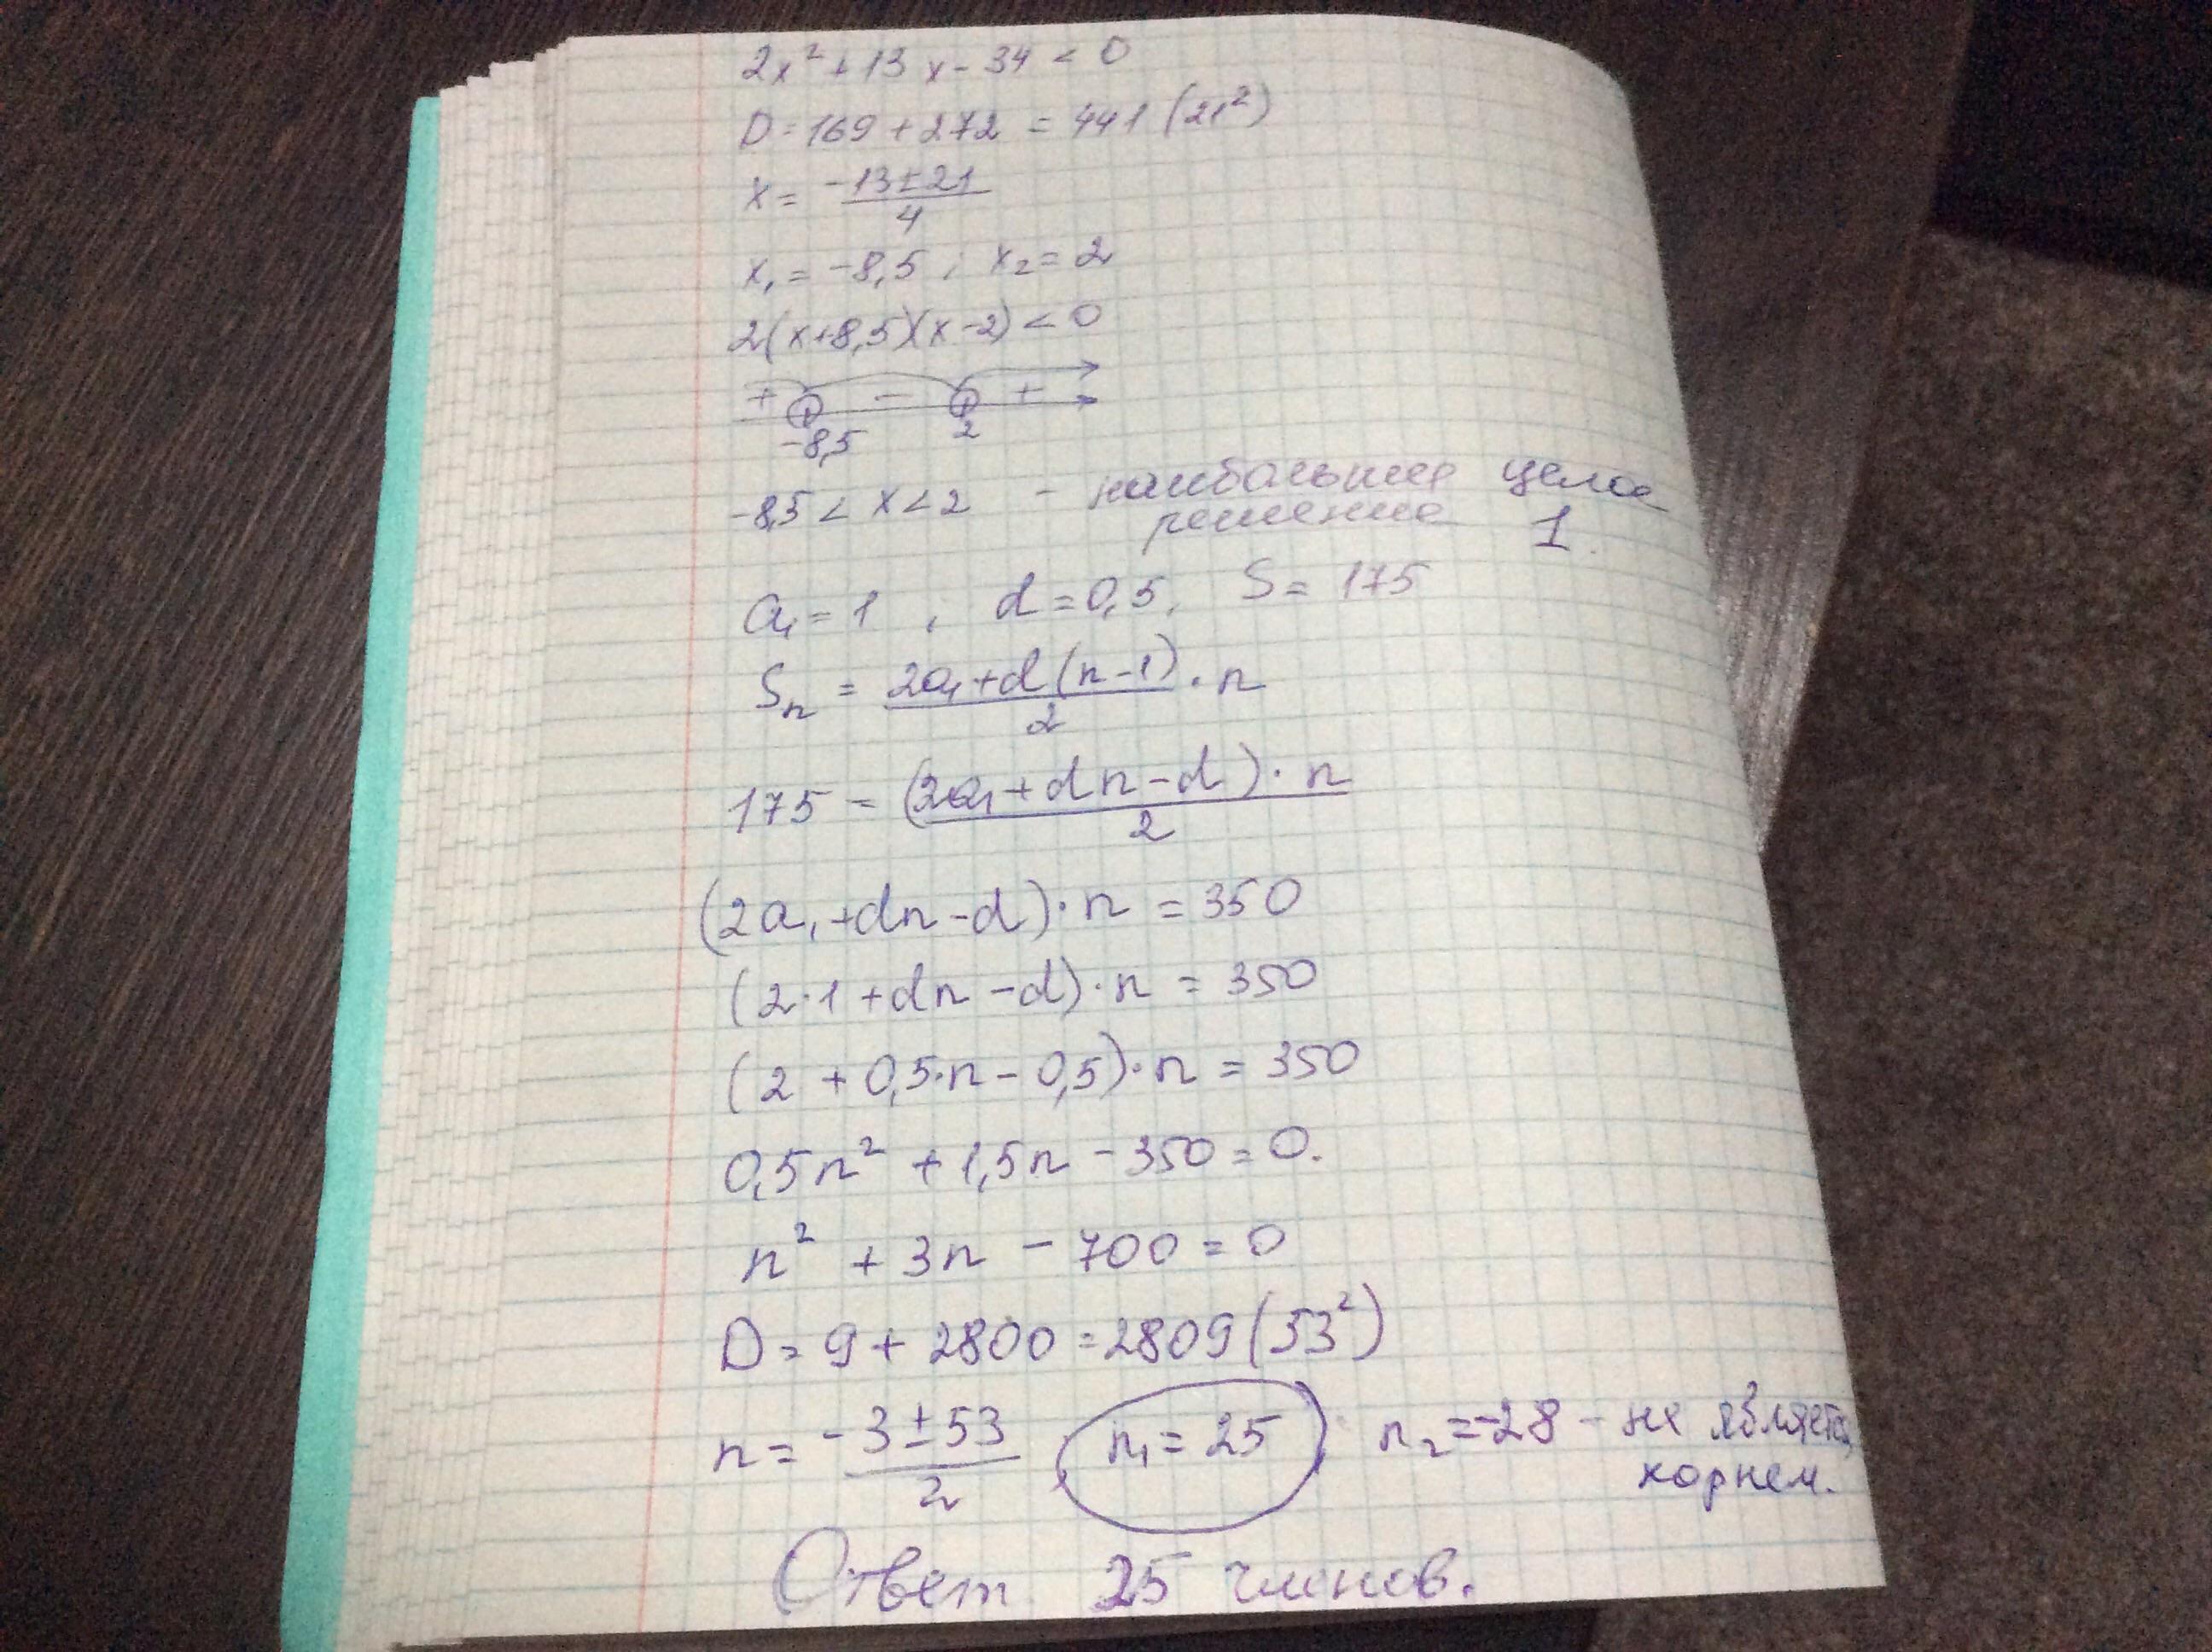 2x² + 13x - 34 < 0
D = 169 + 272 = 441 (21²)
x = (-13 ± 21)/4
x₁ = -8,5 ; x₂ = 2
2(x+8,5)(x-2) < 0
+ - +
-8,5 2
-8,5 < x < 2 - наибольшее целое
решение 1.
a₁ = 1 , d = 0,5, S = 175
Sₙ = (2a₁ + d(n-1))/2 · n
175 = ((2a₁ + dn - d) · n)/2
(2a₁ + dn - d) · n = 350
(2·1 + dn - d) · n = 350
(2 + 0,5·n - 0,5) · n = 350
0,5n² + 1,5n - 350 = 0.
n² + 3n - 700 = 0
D = 9 + 2800 = 2809 (53²)
n = (-3 ± 53)/2 n₁ = 25 n₂ = -28 - не является
корнем.
Ответ 25 членов.